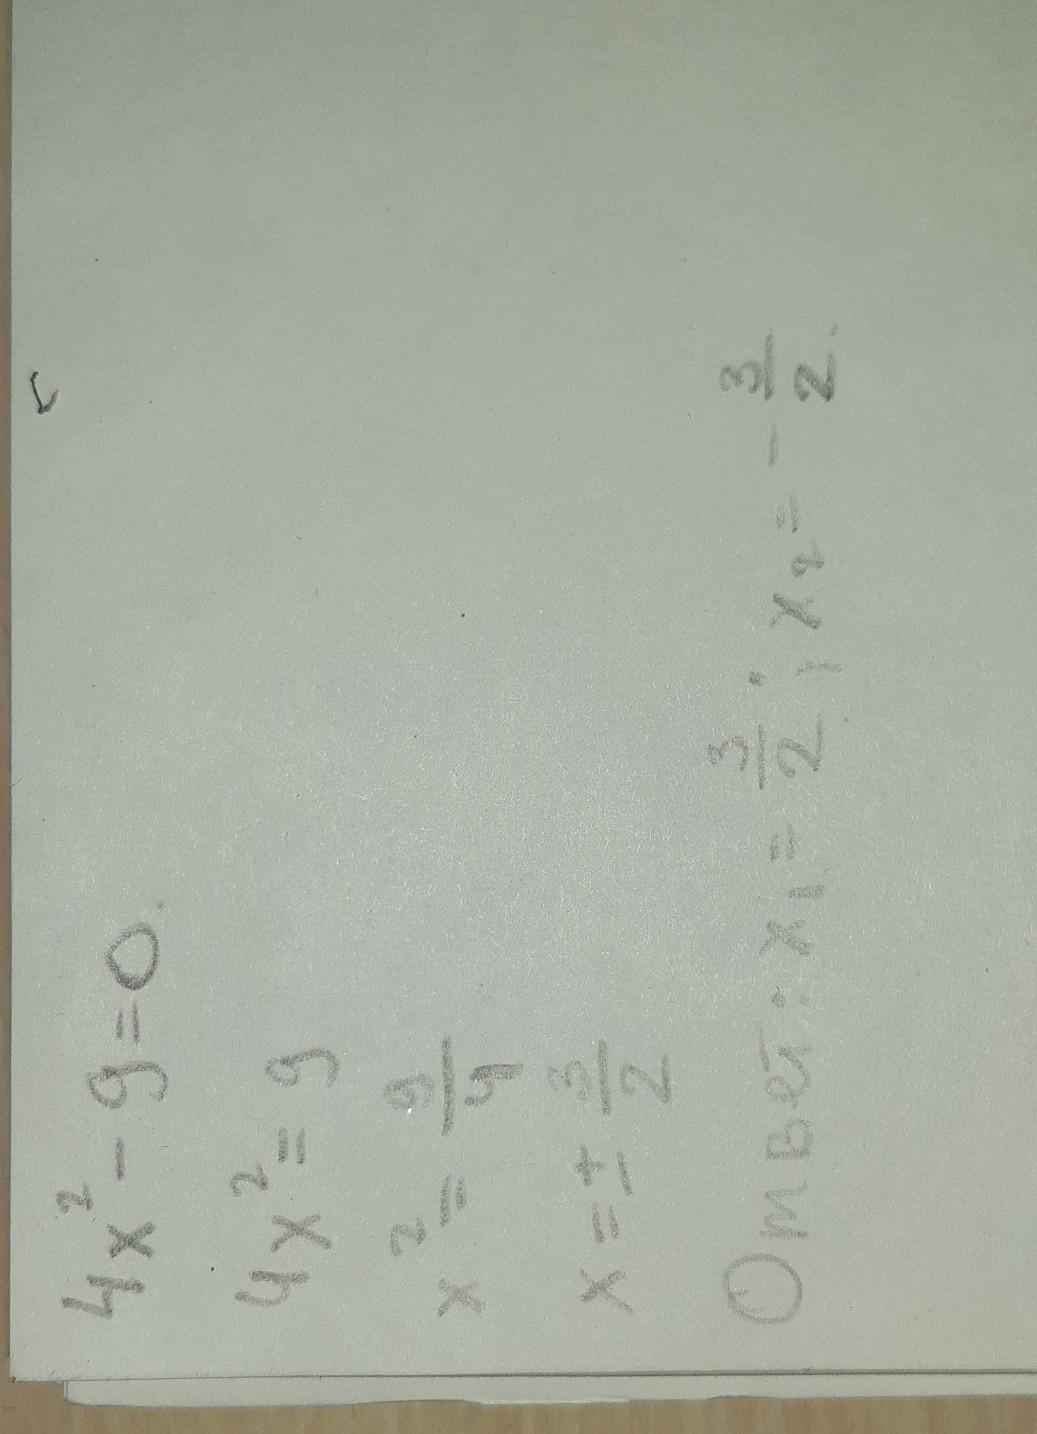 4x² - 9 = 0.
4x² = 9
x² = 9/4
x = ± 3/2
Ответ: x₁ = 3/2; x₂ = - 3/2.